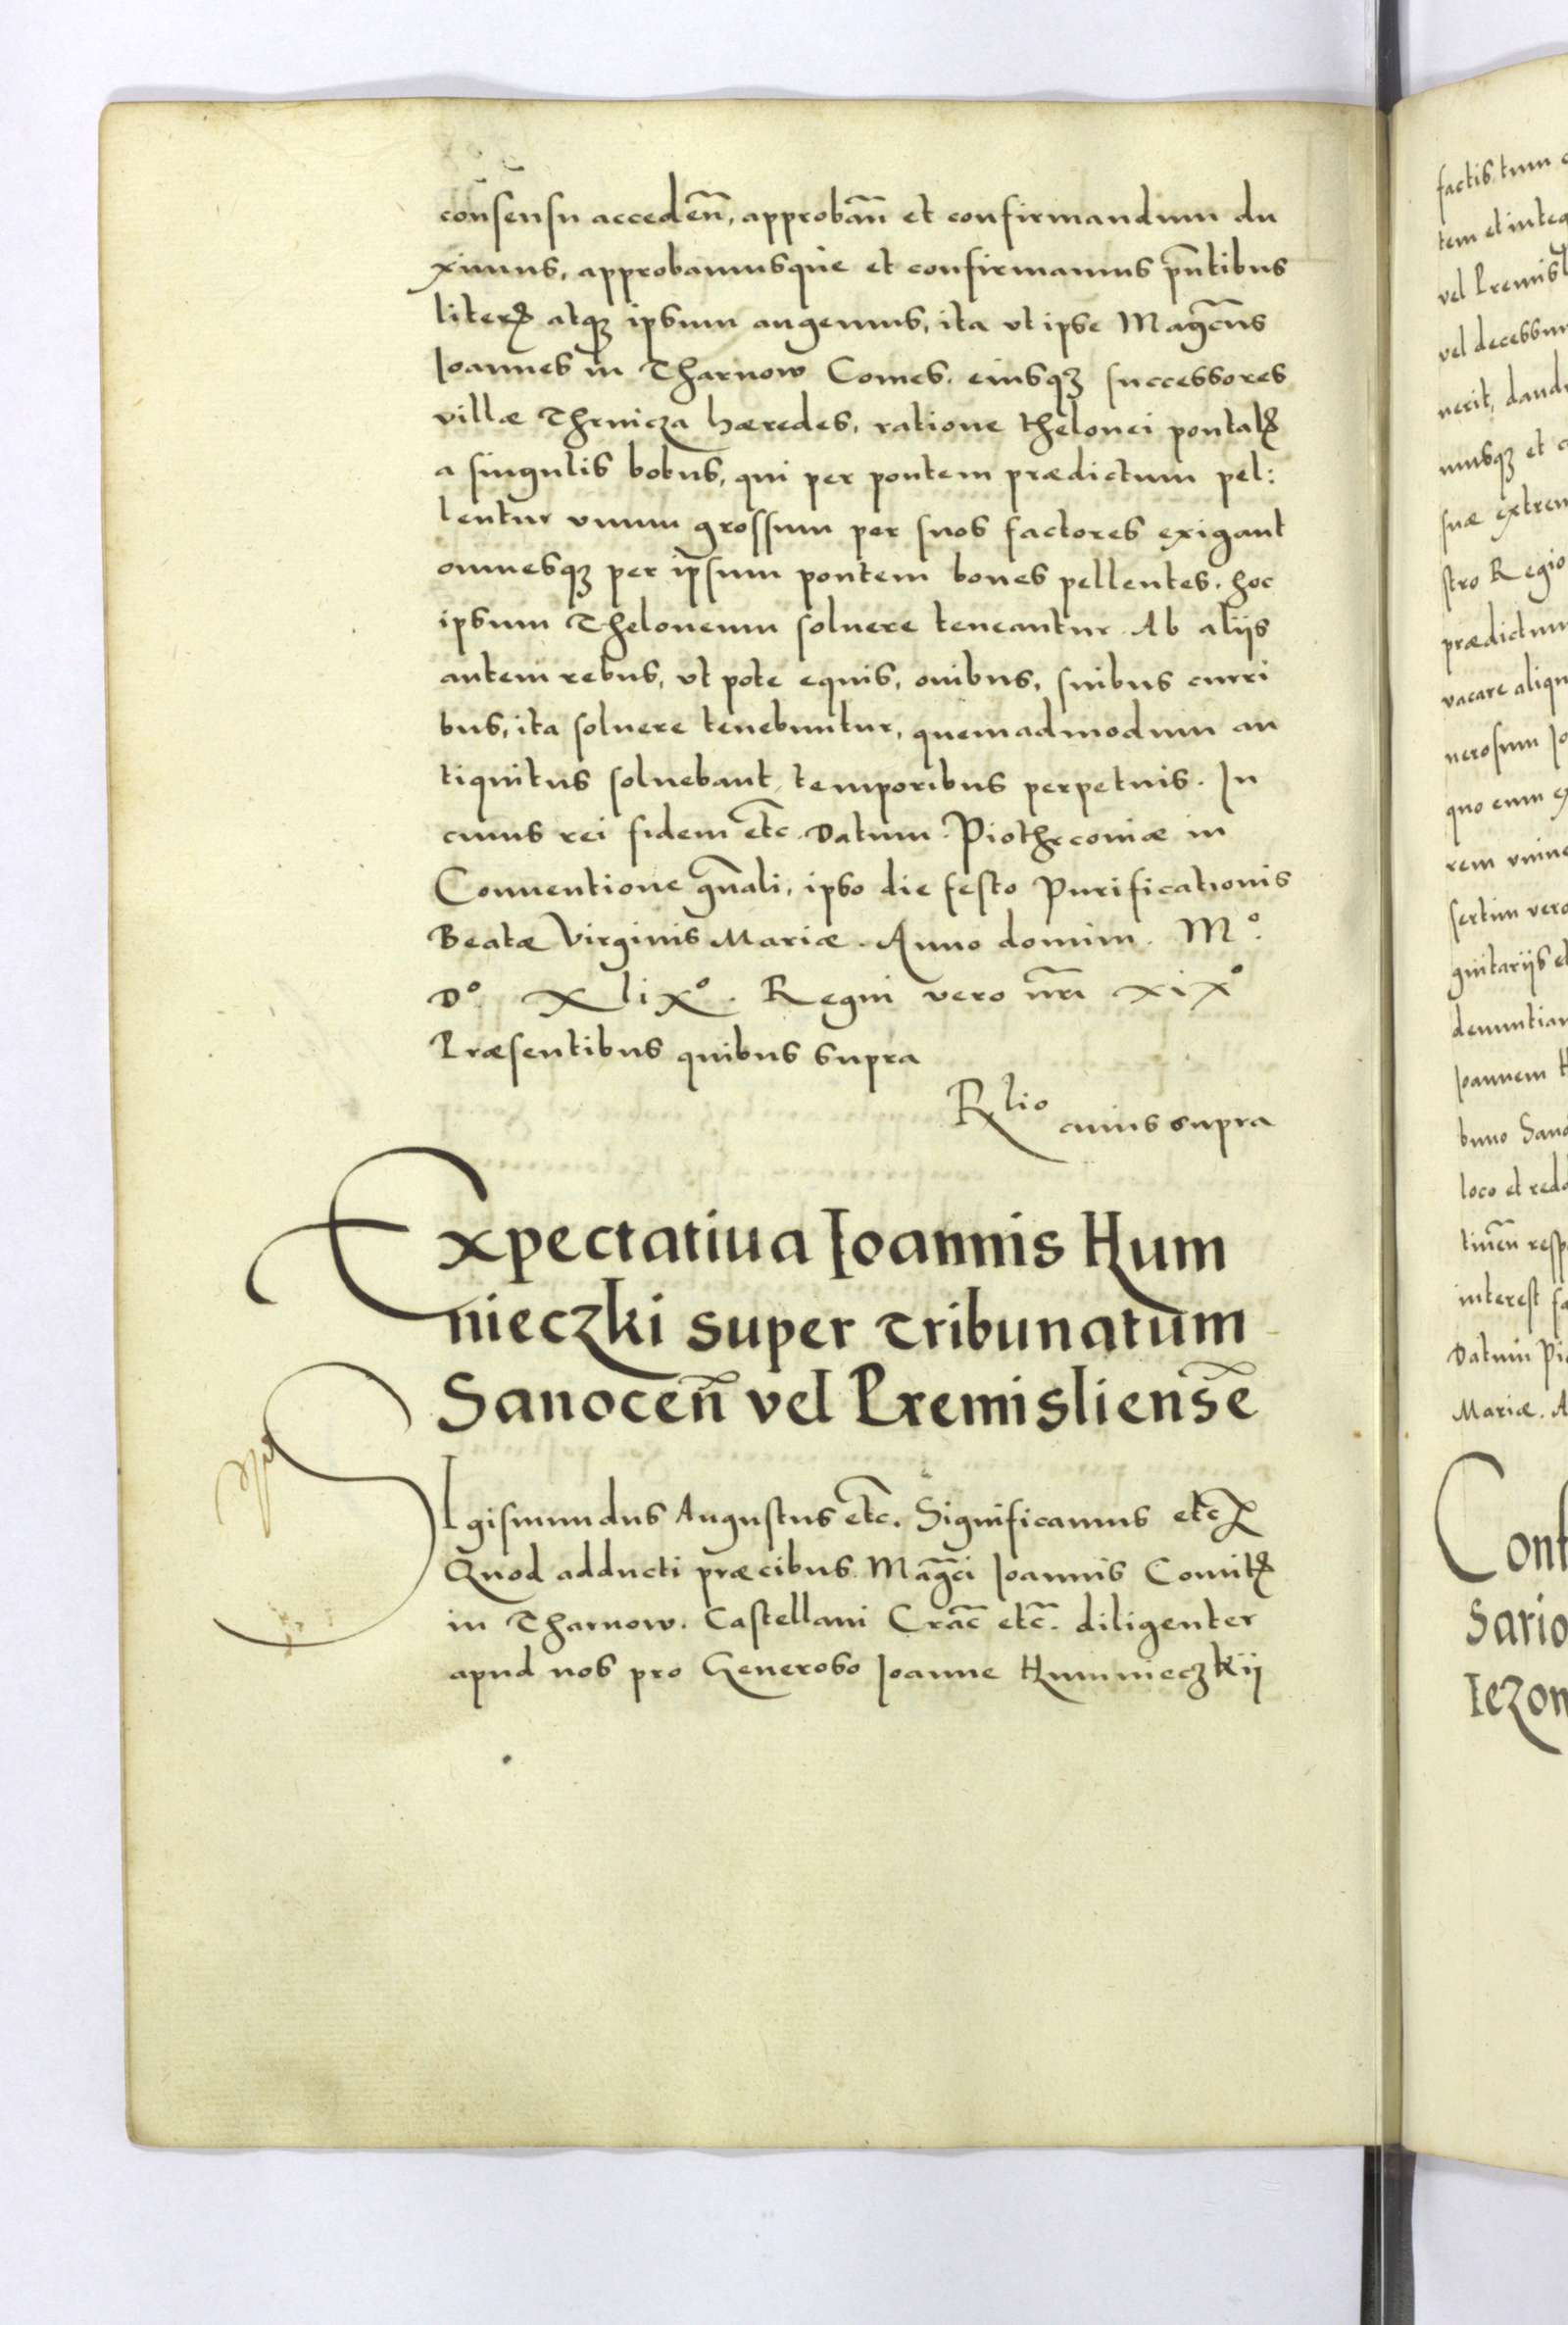 consensu acceden̄, approban̄ et confirmandum du
ximus, approbamusque et confirmamus pn̄tibus
literꝭ atqꝫ ipsum augemus, ita vt ipse Magc̄us
Joannes in Tharnow Comes, eiusqꝫ successores
villæ Thrnicza hæredes, ratione thelonei pontalꝭ
a singulis bobus, qui per pontem prædictum pel:
lentur vnum grossum per suos factores exigant
omnesqꝫ per ip̄sum pontem boues pellentes. hoc
ipsum Theloneum soluere teneantur. Ab aliis
autem rebus, vt pote equis, ouibus, suibus curri
bus, ita soluere tenebuntur, quemadmodum an
tiquitus soluebant temporibus perpetuis. In
cuius rei fidem etc̄. Datum. Piothrcouiæ in
Conuentione gn̄ali, ipso die festo Purificationis
Beatæ Virginis Mariæ. Anno domini. Mº.
Dº. XliXº. Regni vero nr̄i xiXº
Præsentibus quibus supra
Rlio cuius supra
Expectatiua Ioannis Hum
nieczki super Tribunatum
Sanocen̄ vel Premisliensē
SIgismundus Augustus etc̄. Significamus etcꝭ
Quod adducti præcibus Magc̄i Joannis Comitꝭ
in Tharnow. Castellani Crac̄ etc̄. diligenter
apud nos pro Generoso Joanne Humnieczkii
factis, tum
tem et integ
vel Premisl
vel decessum
nerit, dand
musqꝫ et
suæ extrem
stro Regio
prædictum
vacare aliqu
nerosum Jo
quo eum
rem vniue
sertim vero
gnitariis et
denuntiam
Joannem H
buno Sano
loco et redd
tiuēn resp
interest fa
Datum Pi
Mariæ. A
Conf
Sario
Iezon